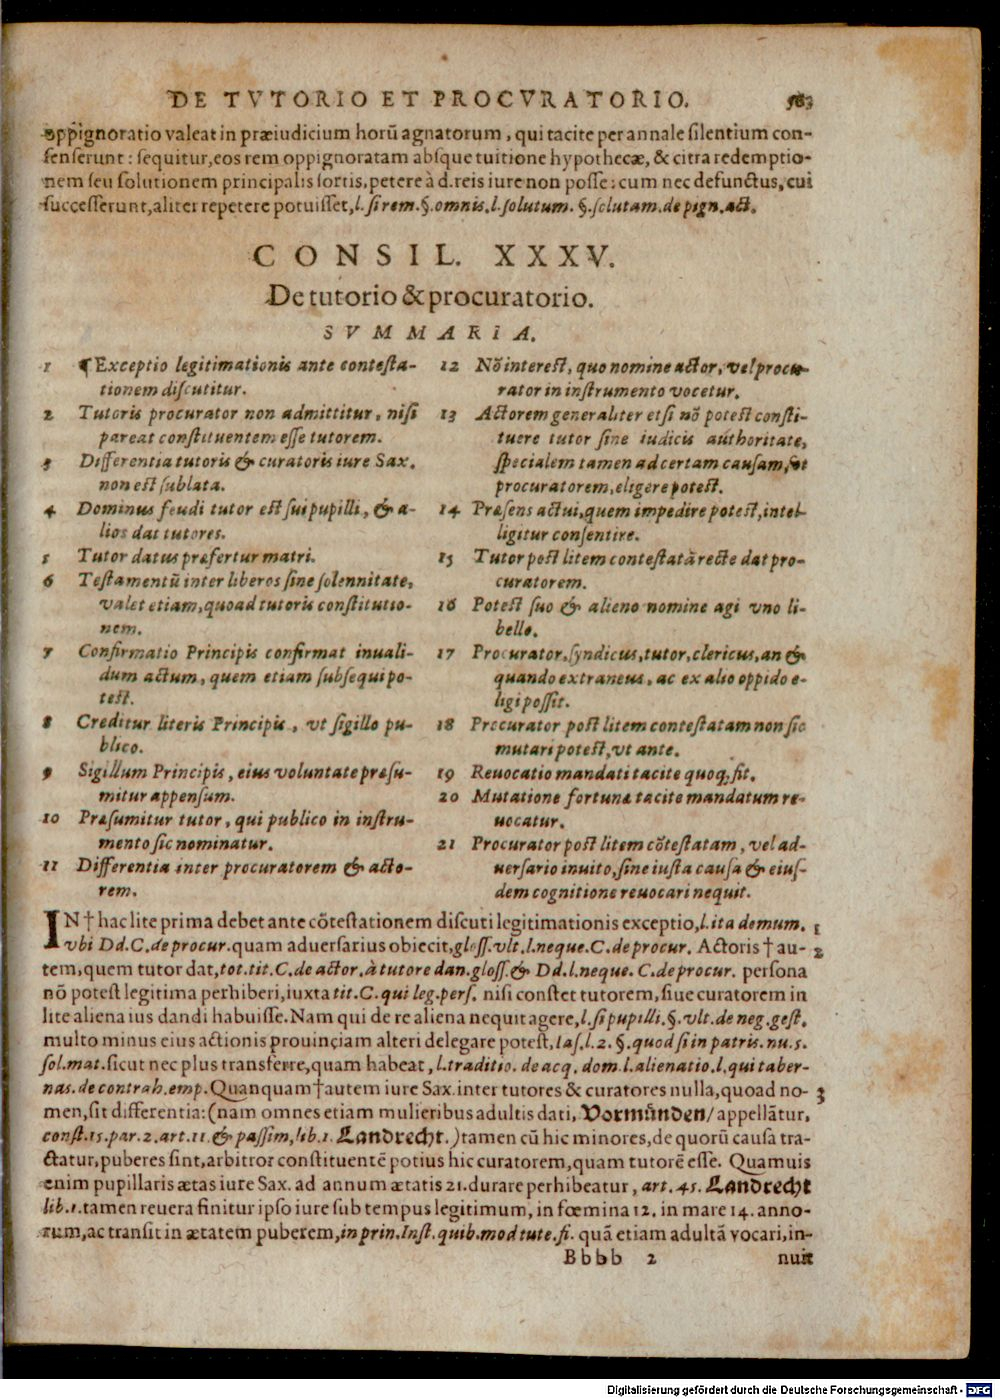 DE TVTORIO ET PROCVRATORIO. 563
oppignoratio valeat in præiudicium horũ agnatorum, qui tacite per annale silentium con-
senserunt: sequitur, eos rem oppignoratam absque tuitione hypothecæ, & citra redemptio-
nem seu solutionem principalis sortis, petere à d. reis iure non posse: cum nec defunctus, cui
successerunt, aliter repetere potuisset, l. si rem. §. omnis. l. solutum. §. solutam. de pign. act.
CONSIL. XXXV.
De tutorio & procuratorio.
SVMMARIA.
1 ¶ Exceptio legitimationis ante contesta-
tionem discutitur.
2 Tutoris procurator non admittitur, nisi
pareat constituentem esse tutorem.
3 Differentia tutoris & curatoris iure Sax.
non est sublata.
4 Dominus feudi tutor est sui pupilli, & a-
lios dat tutores.
5 Tutor datus præfertur matri.
6 Testamentũ inter liberos sine solennitate,
valet etiam, quoad tutoris constitutio-
nem.
7 Confirmatio Principis confirmat inuali-
dum actum, quem etiam subsequi po-
test.
8 Creditur literis Principis, vt sigillo pu-
blico.
9 Sigillum Principis, eius voluntate præsu-
mitur appensum.
10 Præsumitur tutor, qui publico in instru-
mento sic nominatur.
11 Differentia inter procuratorem & acto-
rem.
12 Nõ interest, quo nomine actor, vel procu-
rator in instrumento vocetur.
13 Actorem generaliter etsi nõ potest consti-
tuere tutor sine iudicis authoritate,
specialem tamen ad certam causam, vt
procuratorem, eligere potest.
14 Præsens actui, quem impedire potest, intel-
ligitur consentire.
15 Tutor post litem contestatã recte dat pro-
curatorem.
16 Potest suo & alieno nomine agi vno li-
bello.
17 Procurator, syndicus, tutor, clericus, an &
quando extraneus, ac ex alio oppido e-
ligi possit.
18 Procurator post litem contestatam non sic
mutari potest, vt ante.
19 Reuocatio mandati tacite quoq; fit.
20 Mutatione fortunæ tacite mandatum re-
uocatur.
21 Procurator post litem cõtestatam, vel ad-
uersario inuito, sine iusta causa & eius-
dem cognitione reuocari nequit.
IN † hac lite prima debet ante cõtestationem discuti legitimationis exceptio, l. ita demum. 1
vbi Dd. C. de procur. quam aduersarius obiecit, gloss. vlt. l. neque. C. de procur. Actoris † au- 2
tem, quem tutor dat, tot. tit. C. de actor. à tutore dan. gloss. & Dd. l. neque. C. de procur. persona
nõ potest legitima perhiberi, iuxta tit. C. qui leg. pers. nisi constet tutorem, siue curatorem in
lite aliena ius dandi habuisse. Nam qui de re aliena nequit agere, l. si pupilli. §. vlt. de neg. gest.
multo minus eius actionis prouinciam alteri delegare potest, Ias. l. 2. §. quod si in patris. nu. 5.
sol. mat. sicut nec plus transferre, quam habeat, l. traditio. de acq. dom. l. alienatio. l. qui taber-
nas. de contrah. emp. Quanquam † autem iure Sax. inter tutores & curatores nulla, quoad no- 3
men, sit differentia: (nam omnes etiam mulieribus adultis dati, Vormünden/ appellãtur,
const. 15. par. 2. art. 11. & passim, lib. 1. Landrecht.) tamen cũ hic minores, de quorũ causa tra-
ctatur, puberes sint, arbitror constituentẽ potius hic curatorem, quam tutorẽ esse. Quamuis
enim pupillaris ætas iure Sax. ad annum ætatis 21. durare perhibeatur, art. 45. Landrecht
lib. 1. tamen reuera finitur ipso iure sub tempus legitimum, in fœmina 12. in mare 14. anno-
rum, ac transit in ætatem puberem, in prin. Inst. quib. mod tute. fi. quã etiam adultã vocari, in-
Bbbb 2 nuit
Digitalisierung gefördert durch die Deutsche Forschungsgemeinschaft - DFG